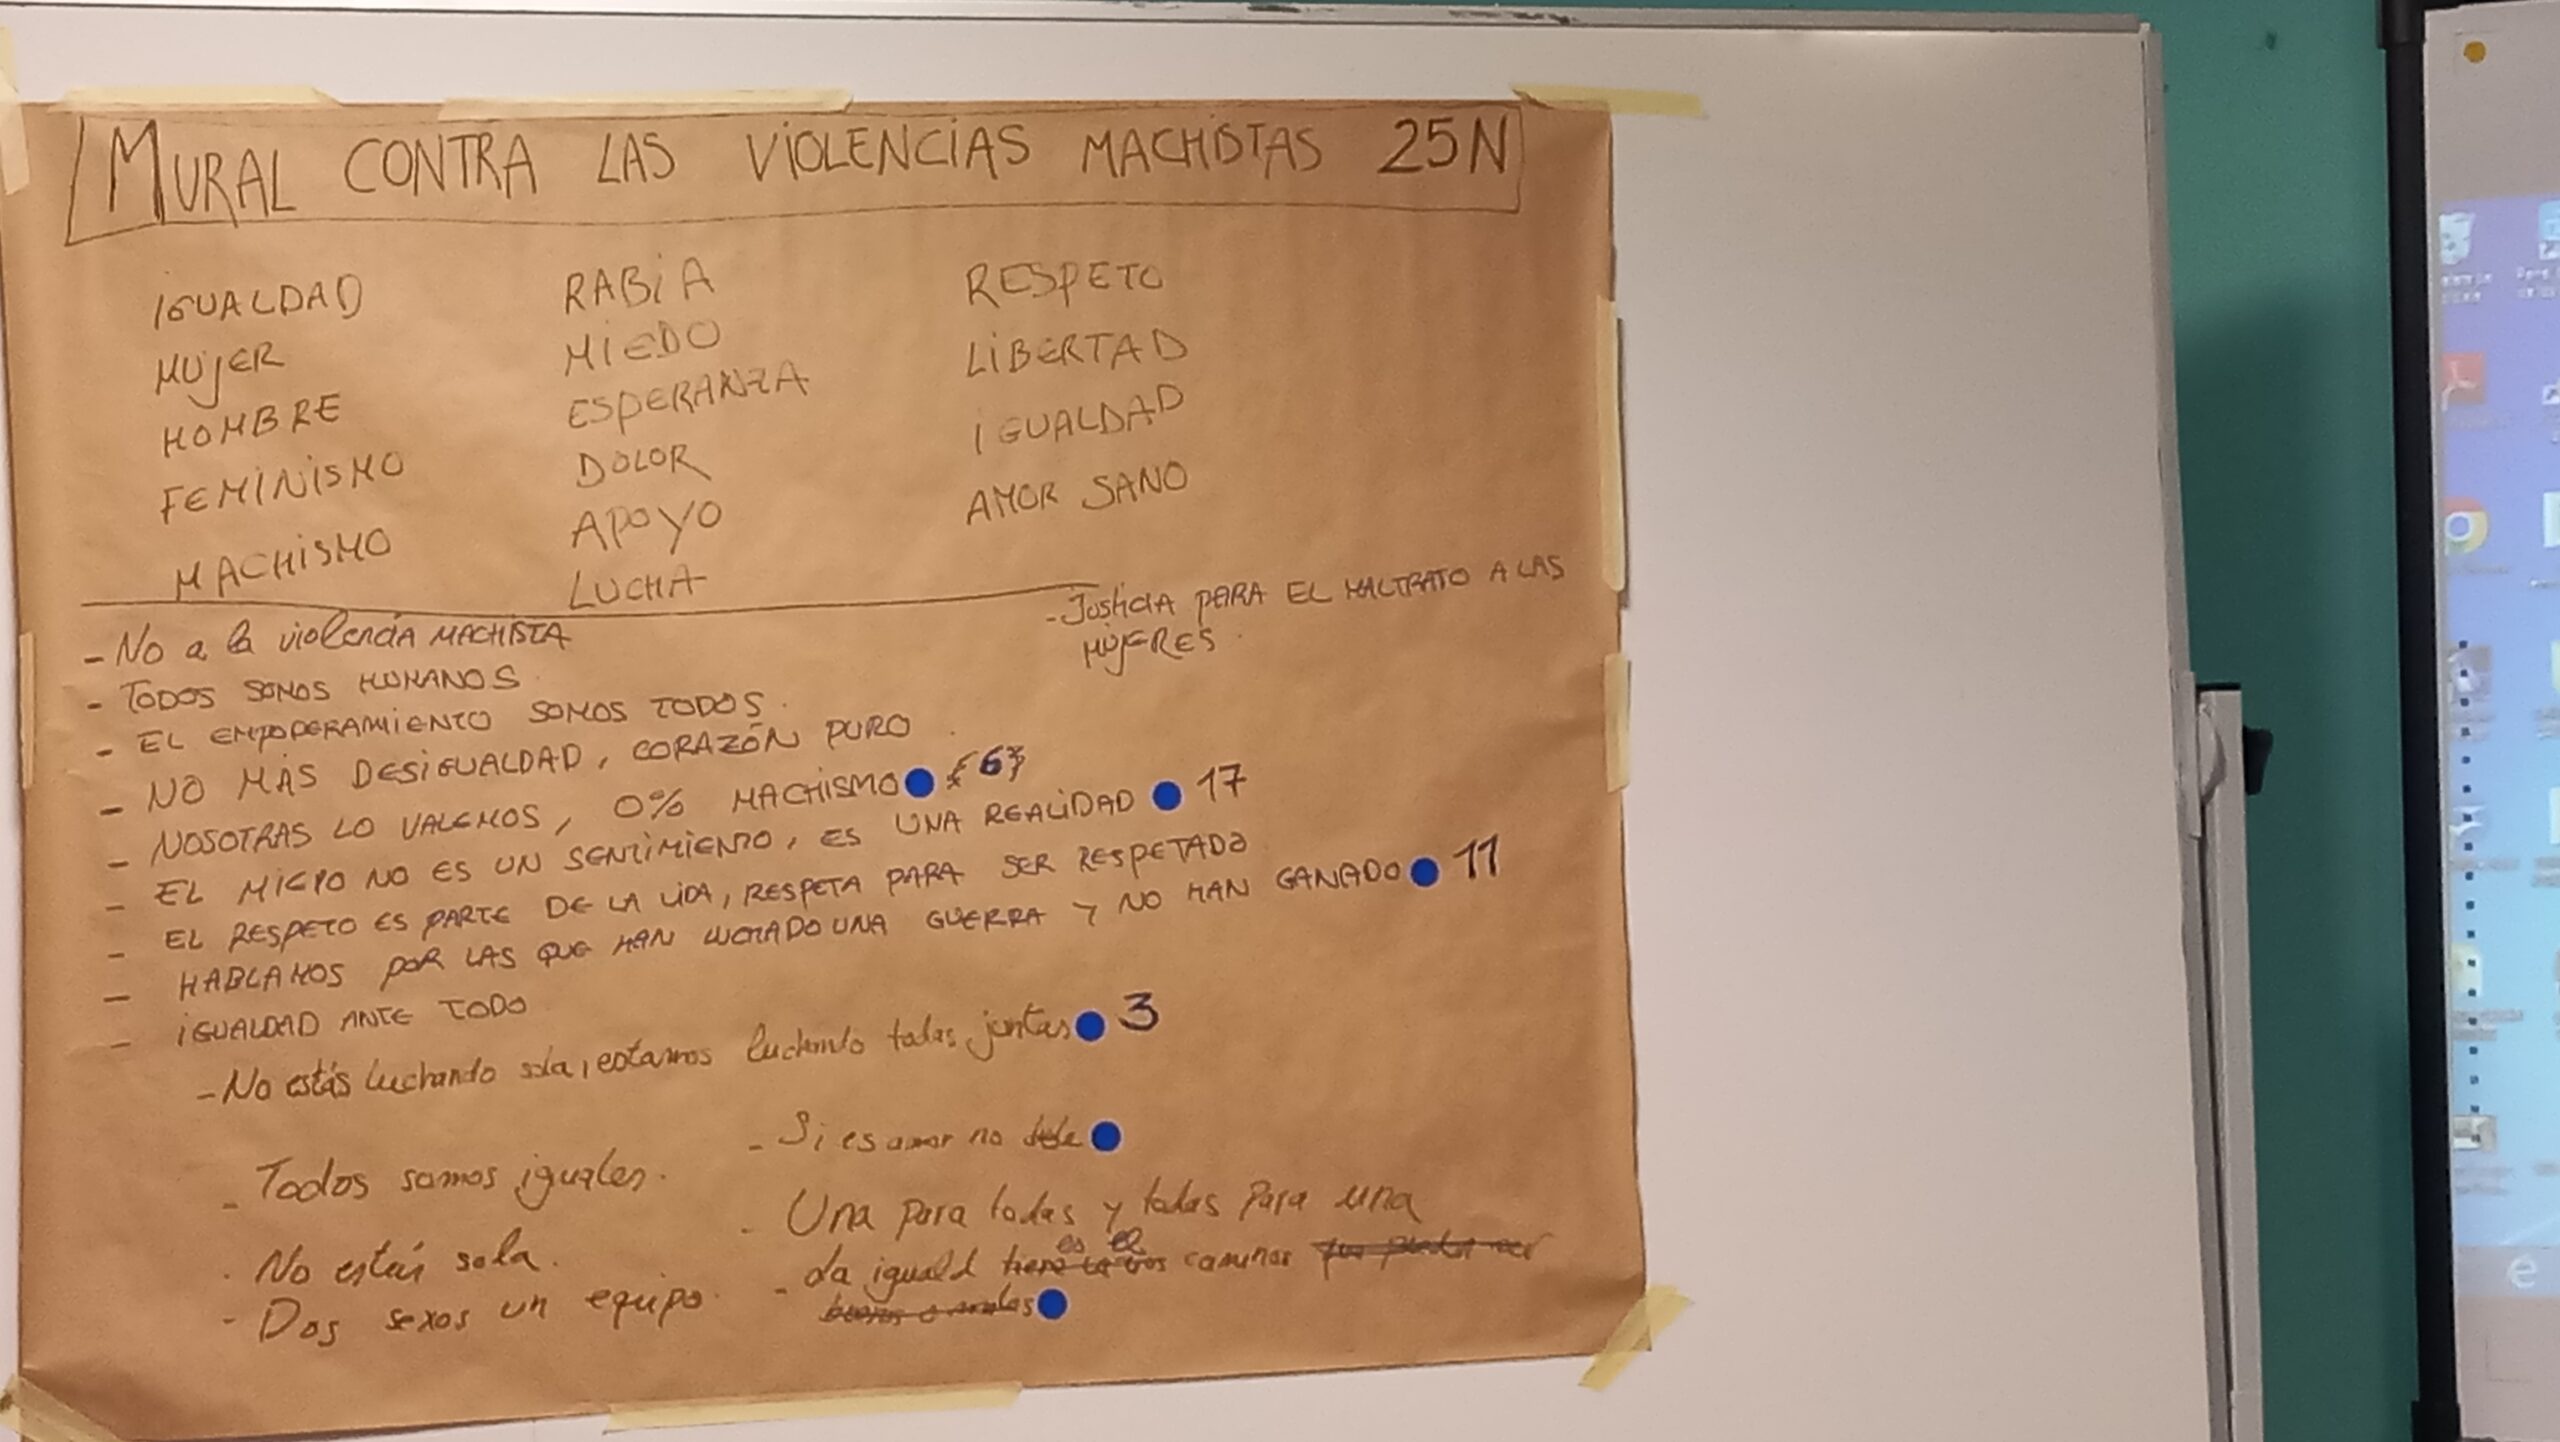 MURAL CONTRA LAS VIOLENCIAS MACHISTAS 25N
IGUALDAD
MUJER
HOMBRE
FEMINISMO
MACHISMO
RABIA
MIEDO
ESPERANZA
DOLOR
APOYO
LUCHA
RESPETO
LIBERTAD
IGUALDAD
AMOR SANO
- No a la violencia MACHISTA
- TODOS SOMOS HUMANOS.
- EL EMPODERAMIENTO SOMOS TODOS.
- NO MÁS DESIGUALDAD, CORAZÓN PURO.
- NOSOTRAS LO VALEMOS, 0% MACHISMO {6}
- EL MICRO NO ES UN SENTIMIENTO, ES UNA REALIDAD 17
- EL RESPETO ES PARTE DE LA VIDA, RESPETA PARA SER RESPETADO
- HABLAMOS POR LAS QUE HAN LUCHADO UNA GUERRA Y NO HAN GANADO 11
- IGUALDAD ANTE TODO
- No estás luchando sola, estamos luchando todas juntas 3
- Justicia PARA EL MALTRATO A LAS
MUJERES.
- Todos somos iguales.
- No estás sola.
- Dos sexos un equipo.
- Si es amor no duele
- Una para todas y todas para una
es el
- La iguald caminos